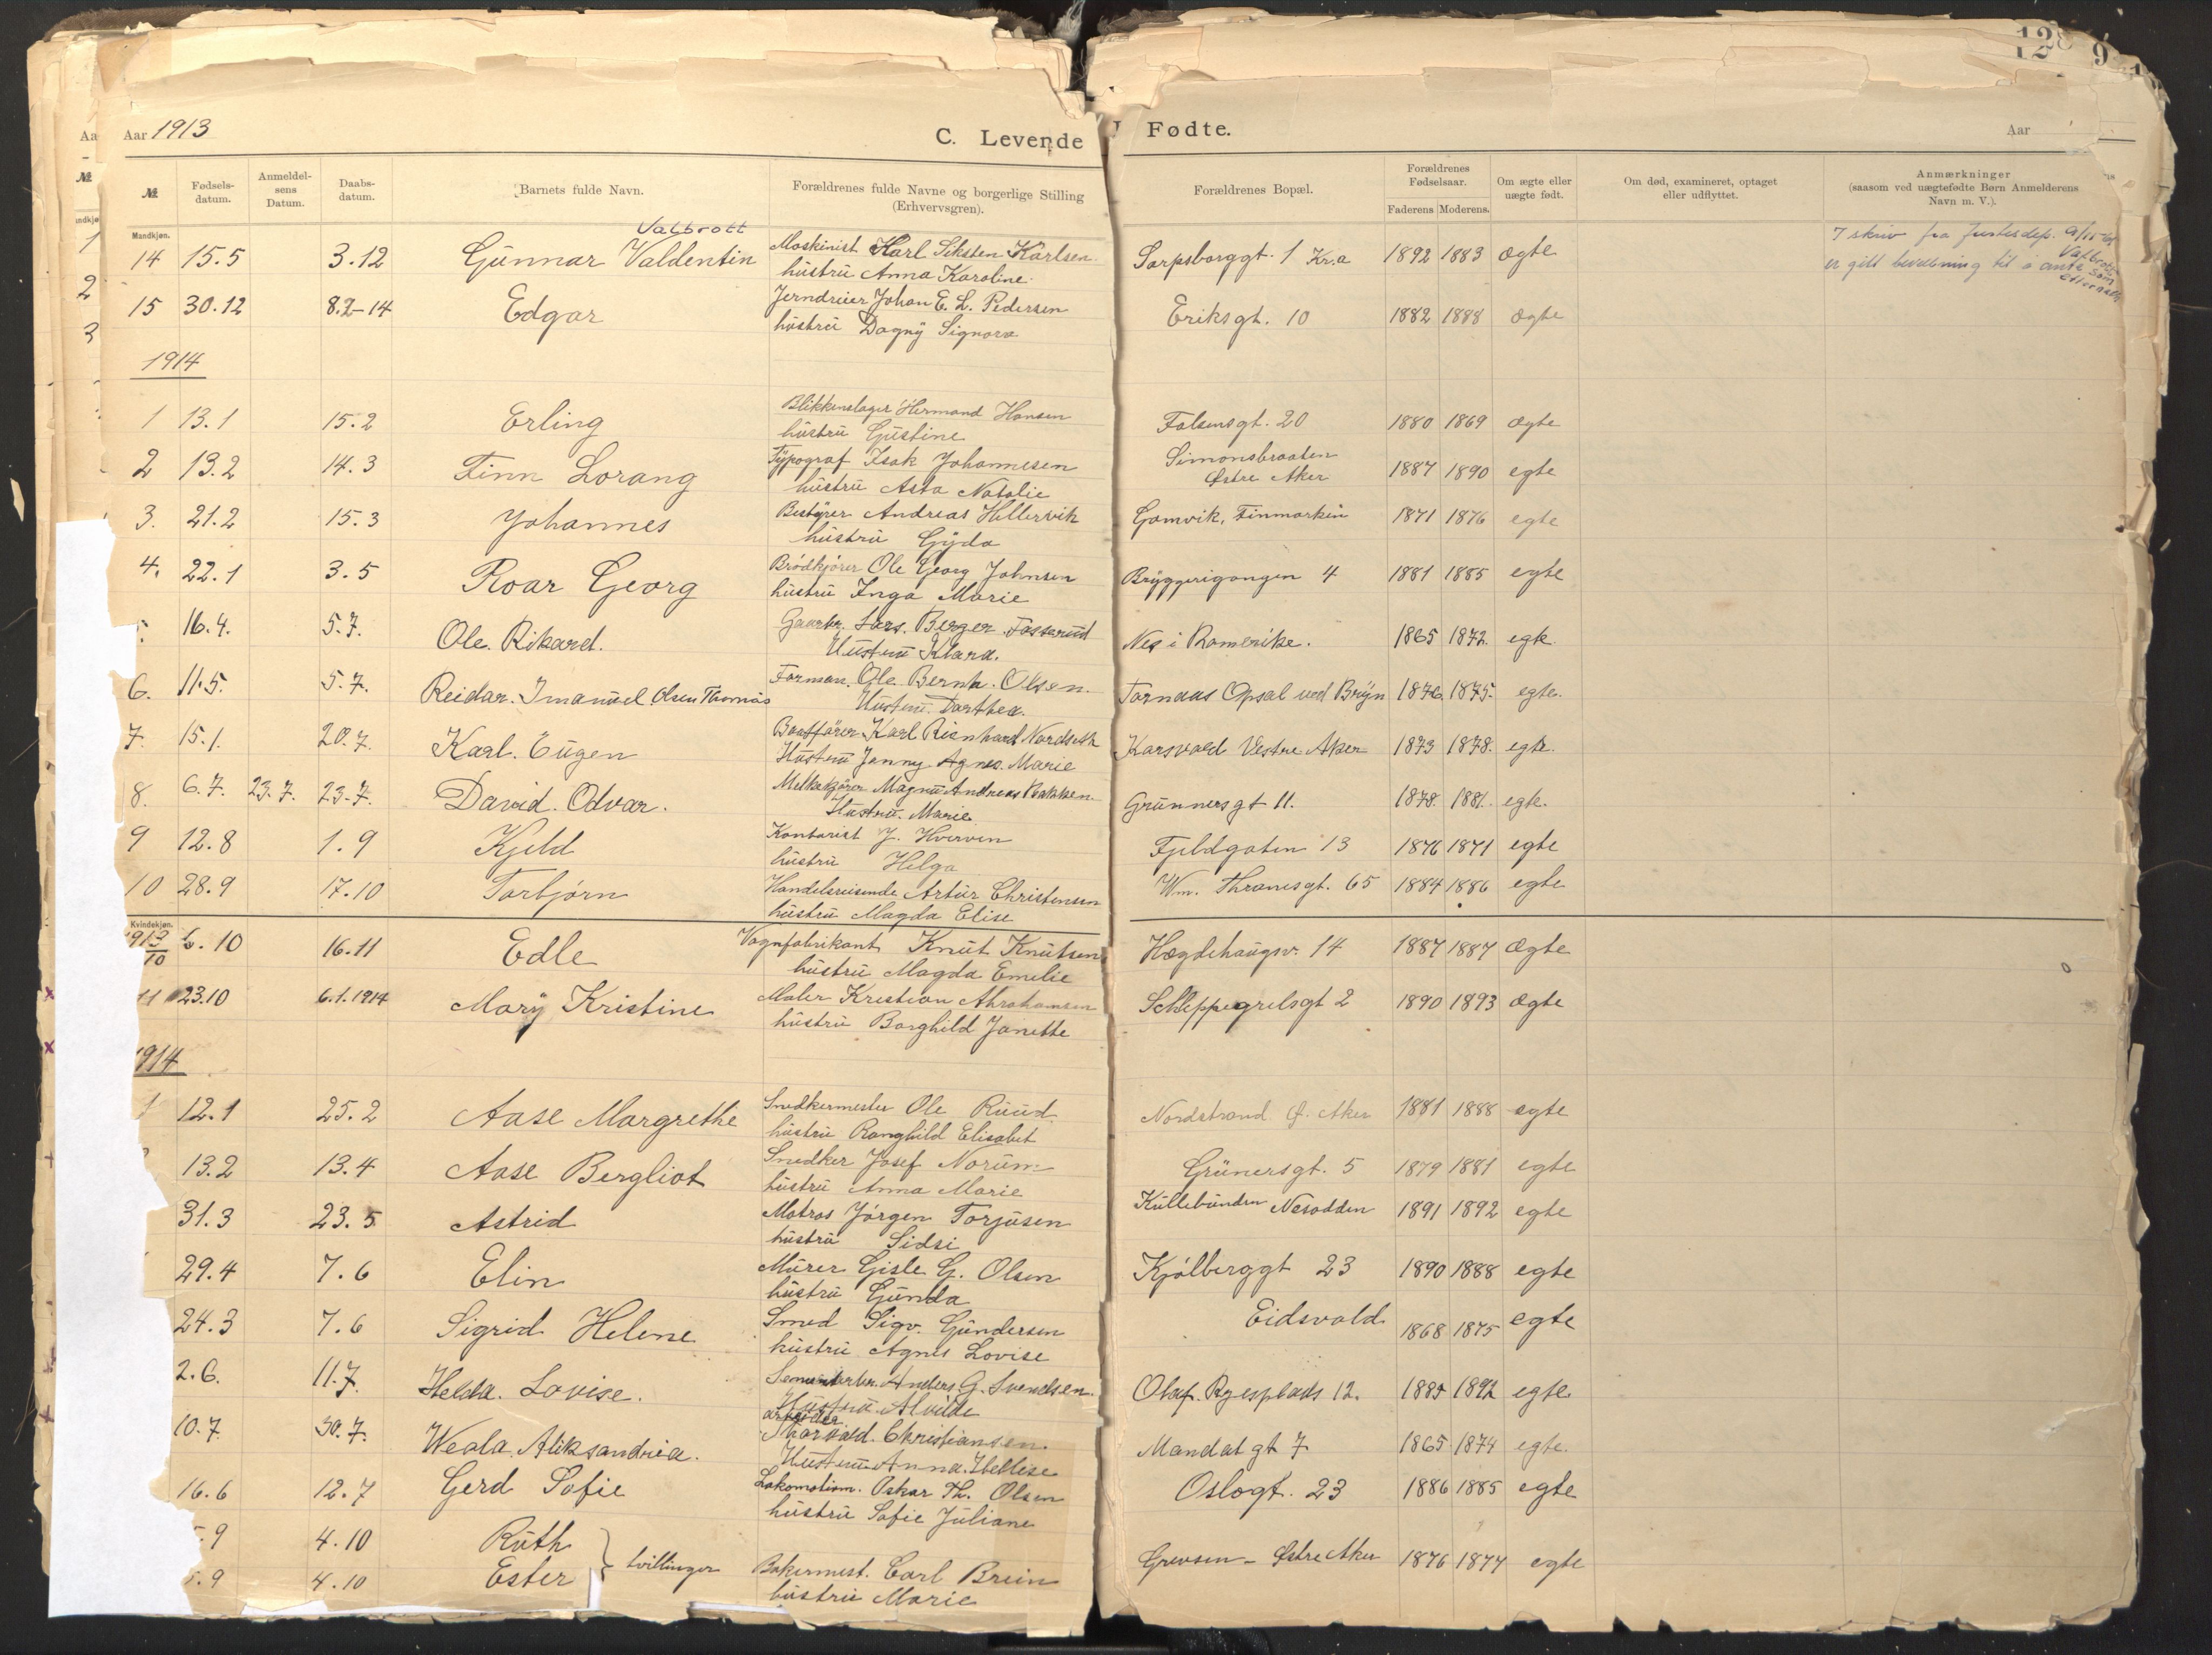 128
9
Aar 1913
C. Levende Fødte.
Aar
№
Fødsels-datum.
Anmeldelsens Datum.
Daabs-datum.
Barnets fulde Navn.
Forældrenes fulde Navne og borgerlige Stilling (Erhvervsgren).
Forældrenes Bopæl.
Forældrenes Fødselsaar.
Faderens Moderens.
Om ægte eller uægte født.
Om død, examineret, optaget eller udflyttet.
Anmærkninger (saasom ved uægtefødte Børn Anmelderens Navn m. V.).
Mandkjøn.
Valbrott
14 15.5 3.12 Gunnar Valdentin Maskinist Karl Siksten Karlsen Sarpsborggt. 1 Kr.a 1892 1883 ægte I skriv fra justisdep.
hustru Anna Karoline er gitt bevilling til å anta Valbrott som etternavn
15 30.12 8.2-14 Edgar Jerndreier Johan E. L. Pedersen Eriksgt. 10 1882 1888 ægte
hustru Dagny Signora
1914
1 13.1 15.2 Erling Blikkenslager Hermand Hansen Falsensgt. 20 1880 1869 ægte
hustru Gustine
2 13.2 14.3 Finn Lorang Typograf Isak Johannesen Simonsbraaten Østre Aker 1887 1890 egte
hustru Asta Natalie
3. 21.2 15.3 Johannes Bestyrer Andreas Hellervik Gamvik, Finmarken 1871 1876 egte
hustru Gyda
4. 22.1 3.5 Roar Georg Brødkjører Ole Georg Johnsen Bryggerigangen 4 1881 1885 egte
hustru Inga Marie
16.4. 5.7. Ole. Rikard. Gaarbr. Lars. Berger. Fosserud Nes i Romerike. 1865 1872. egte.
Hustru Klara.
6. 11.5. 5.7. Reidar. Imanuel. Olsen Thornæs Forman. Ole. Bernh. Olsen. Tornaas Opsal ved Bryn 1876. 1875. egte.
Hustru. Dorthea.
7. 15.1. 20.7. Karl. Eugen Karl Rienhard Nordseth Korsvold Vestre Aker 1873 1878. egte.
Hustru Jenny Agnes. Marie
8. 6.7. 23.7. 23.7. David. Odvar. Melkekjører Magnu Andreas Bakken. Grunners gt 11. 1878. 1881. egte.
Hustru. Marie
9 12.8 1.9 Kjeld Kontorist J. Hverven Fjeldgaten 13 1876 1871 egte
hustru Helga
10 28.9 17.10 Torbjørn Handelsreisende Artur Christensen Wm. Thranesgt. 65 1884 1886 egte
hustru Magda Elise
Kvindekjøn.
1913
10 6.10 16.11 Edle Vognfabrikant Knut Knutsen Hægdehaugsv. 14 1887 1887 ægte
hustru Magda Emelie
11 23.10 6.1.1914 Mary Kristine Maler Kristian Abrahamsen Schleppegrelsgt 2 1890 1893 ægte
hustru Borghild Janette
1914
1 12.1 25.2 Aase Margrethe Snedkermester Ole Ruud Nordstrand Ø. Aker 1881 1888 egte
hustru Ranghild Elisabet
13.2 13.4 Aase Bergliot Snedker Josef Norum Grünersgt. 5 1879 1881 egte
hustru Anna Marie
31.3 23.5 Astrid Matros Jørgen Torjusen Kullebunden Nesodden 1891 1892 egte
hustru Sidsi
29.4 7.6 Elin Murer Gisle G. Olsen Kjølberggt 23 1890 1888 egte
hustru Gunda
24.3 7.6 Sigrid Helene Smed Sigv. Gundersen Eidsvold 1868 1875 egte
hustru Agnes Lovise
2.6. 11.7. Helda. Lovise. Anders G. Svendsen. Olaf. Ryesplads 12. 1885 1892 egte.
Hustru. Alvilde
10.7. 30.7. Weala. Aliksandria. arbeider Thorvald. Christiansen. Mandal gt 7. 1865 1874 egte.
Hustru Anna. Hellese
16.6 12.7 Gerd Sofie Lokomotivm. Oskar Th. Olsen Oslogt. 23 1886 1885 egte
hustru Sofie Juliane
.9 4.10 Ruth
.9 4.10 Ester } tvillinger Bakermest. Carl Brein Grevsen - Østre Aker 1876 1877 egte
hustru Marie